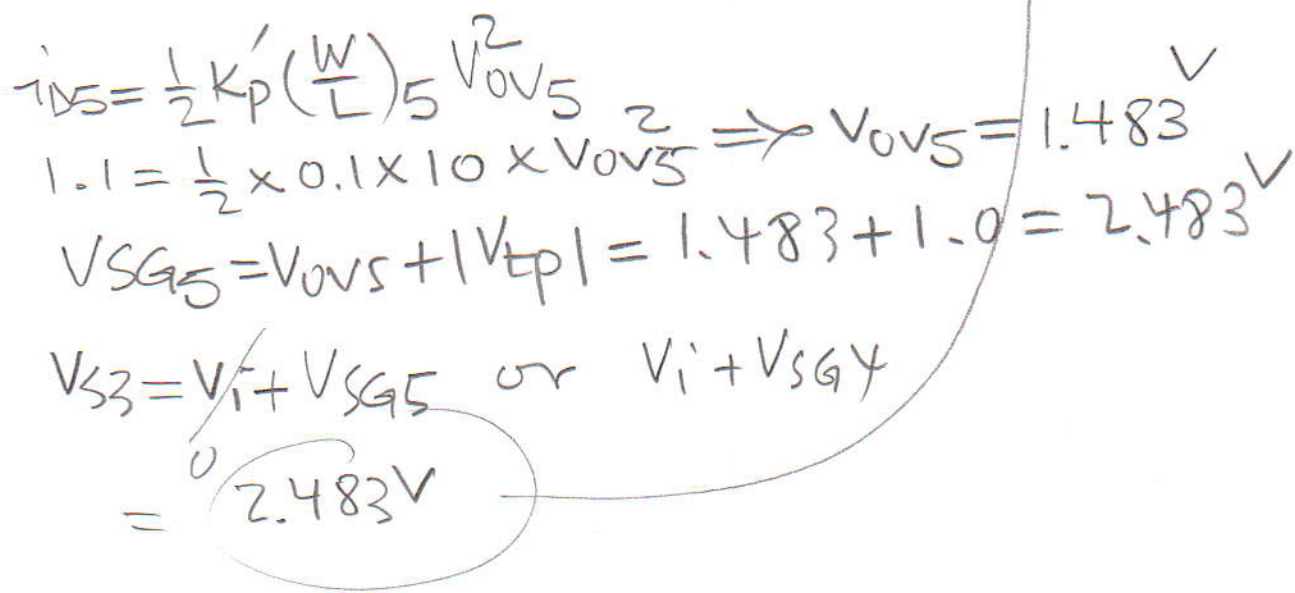 iD5 = 1/2 Kp' (W/L)5 VOV5²
1.1 = 1/2 × 0.1 × 10 × VOV5² => VOV5 = 1.483 V
VSG5 = VOV5 + |Vtp| = 1.483 + 1.0 = 2.483 V
VS3 = Vi + VSG5 or Vi + VSG4
0
= 2.483 V